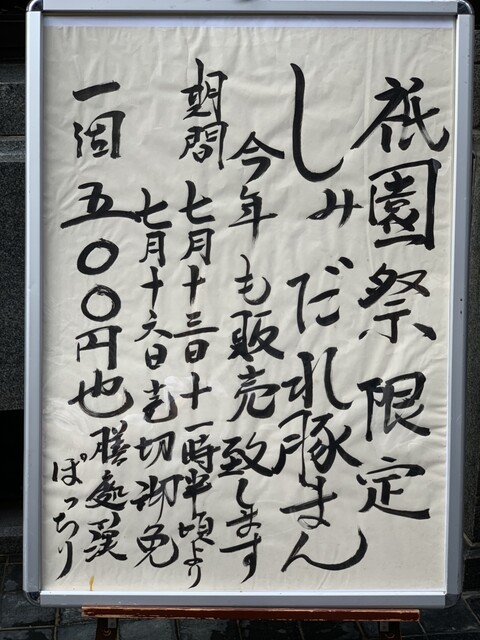 祇園祭限定
しみだれ豚まん
今年も販売致します
期間 七月十三日十一時半頃より
七月十六日売切御免
一個 五〇〇円也
膳處漢
ぽっちり